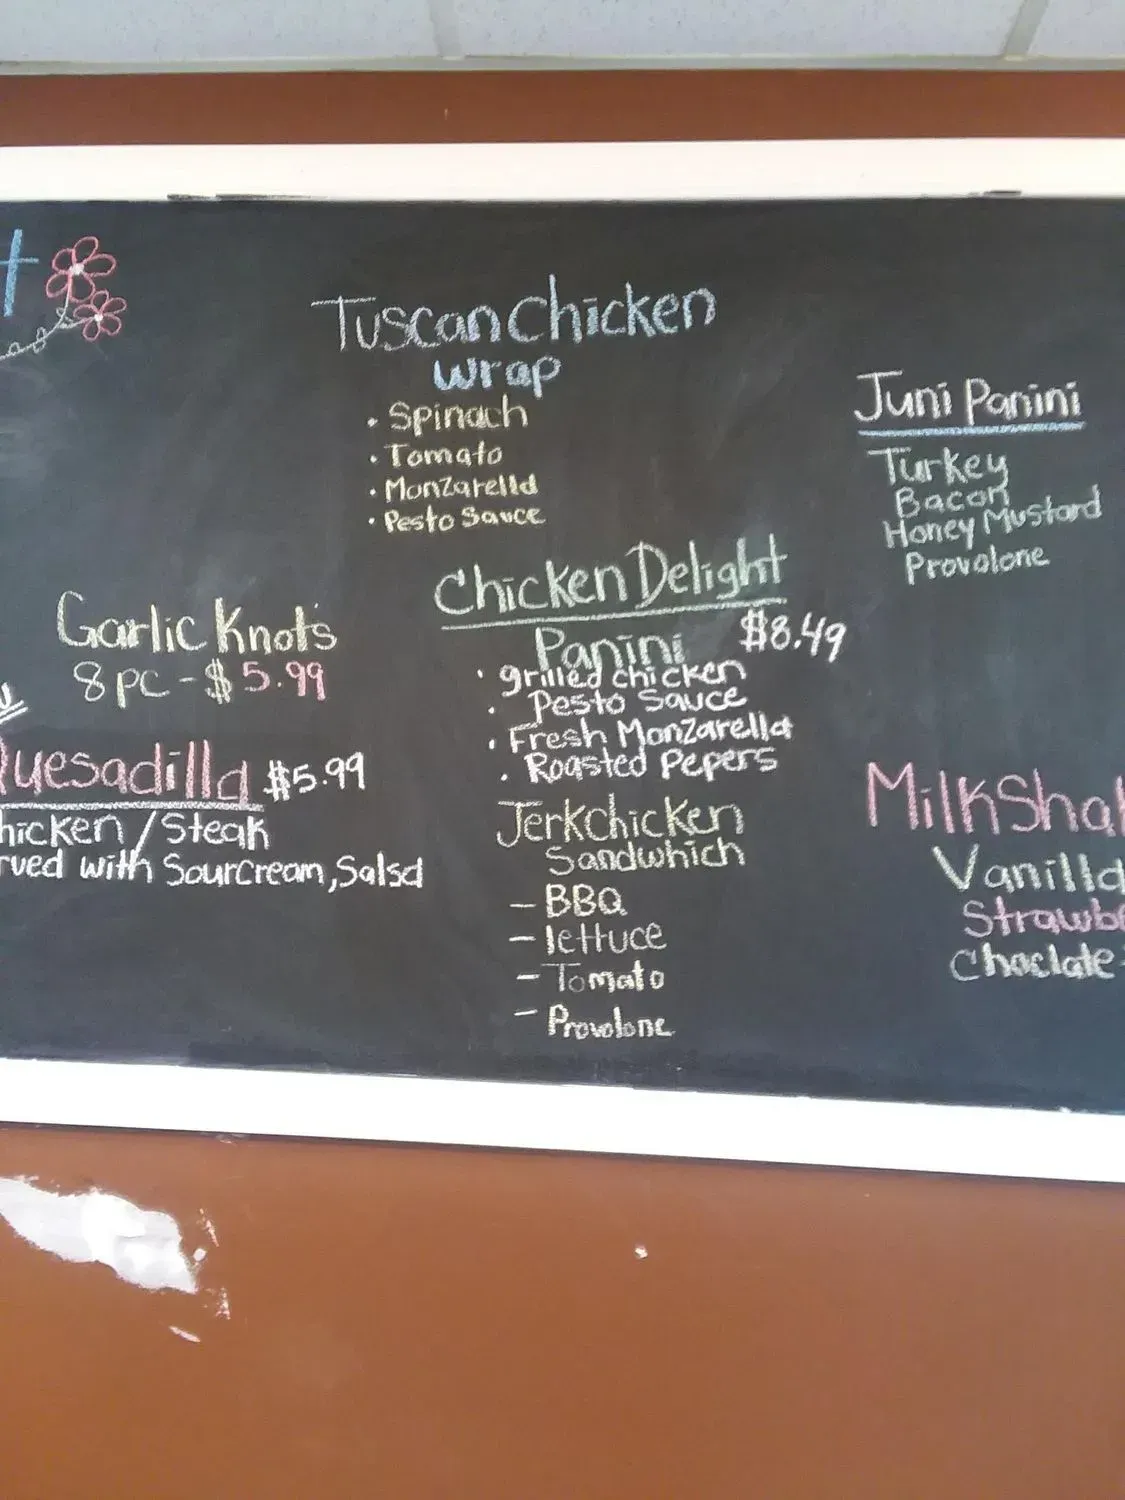 Tuscan Chicken
wrap
• Spinach
• Tomato
• Monzarella
• Pesto Sauce
Juni Panini
Turkey
Bacon
Honey Mustard
Provolone
Garlic Knots
8 pc - $5.99
Quesadilla $5.99
hicken / Steak
rved with Sour Cream, Salsa
Chicken Delight
Panini $8.49
• grilled chicken
• Pesto Sauce
• Fresh Monzarella
• Roasted Pepers
Jerk chicken
Sandwhich
- BBQ
- lettuce
- Tomato
- Provolone
MilkSha
Vanilla
Strawb
Choclate